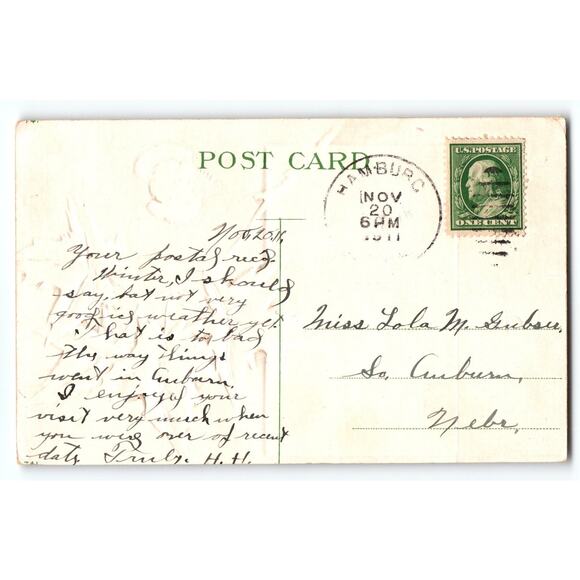 POST CARD.
HAMBURG
NOV
20
6 PM
1911
U.S. POSTAGE
ONE CENT
Nov 20, 11.
Your postal recd.
Winter, I should
say, but not very
good ice weather yet.
That is to bad
the way things
went in Auburn.
I enjoyed your
visit very much when
you were over of recent
date. Truly. H. H.
Miss Lola M. Gubser,
So. Auburn,
Nebr.